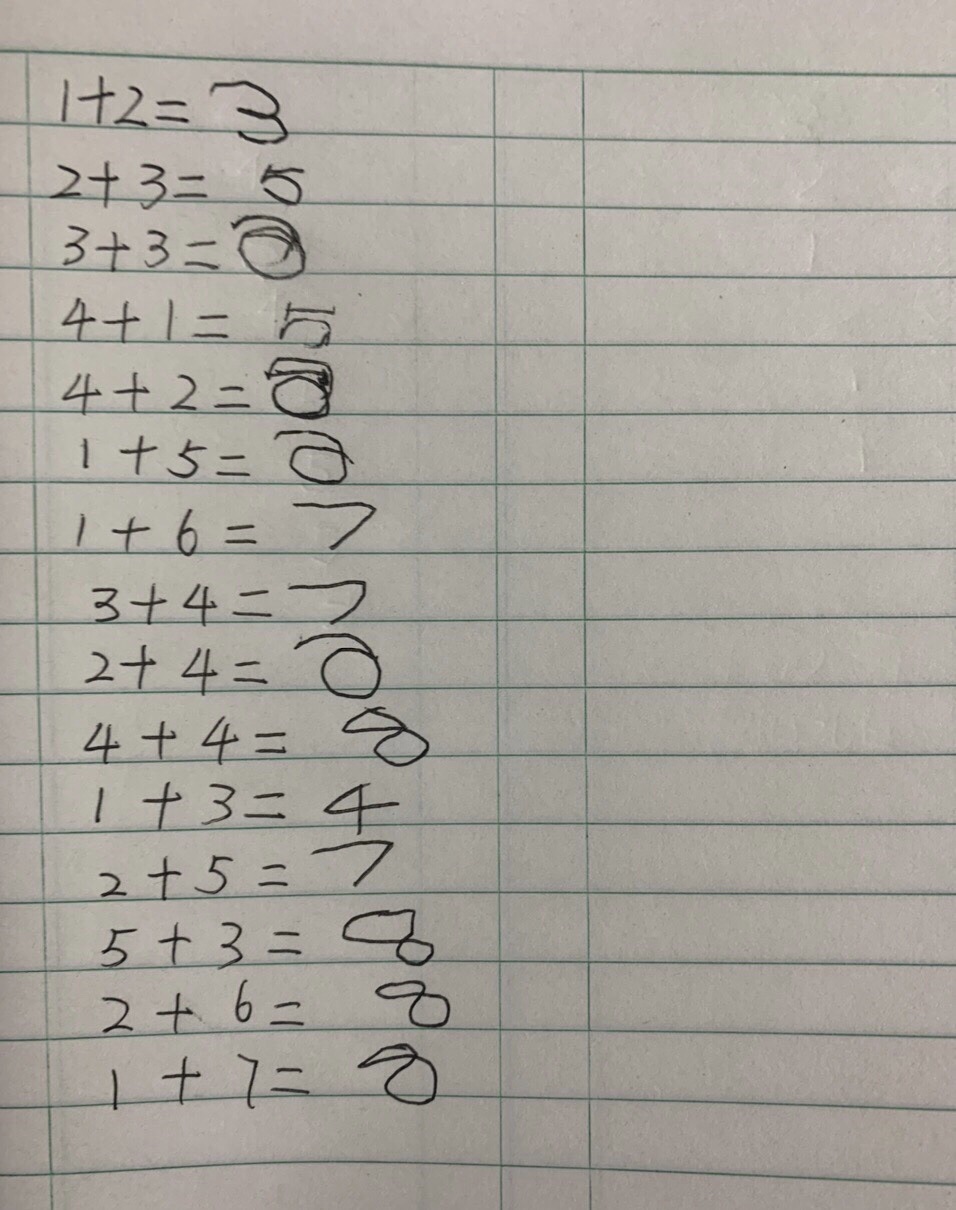 1+2=3
2+3=5
3+3=
4+1=5
4+2=
1+5=
1+6=7
3+4=7
2+4=
4+4=8
1+3=4
2+5=7
5+3=8
2+6=8
1+7=8